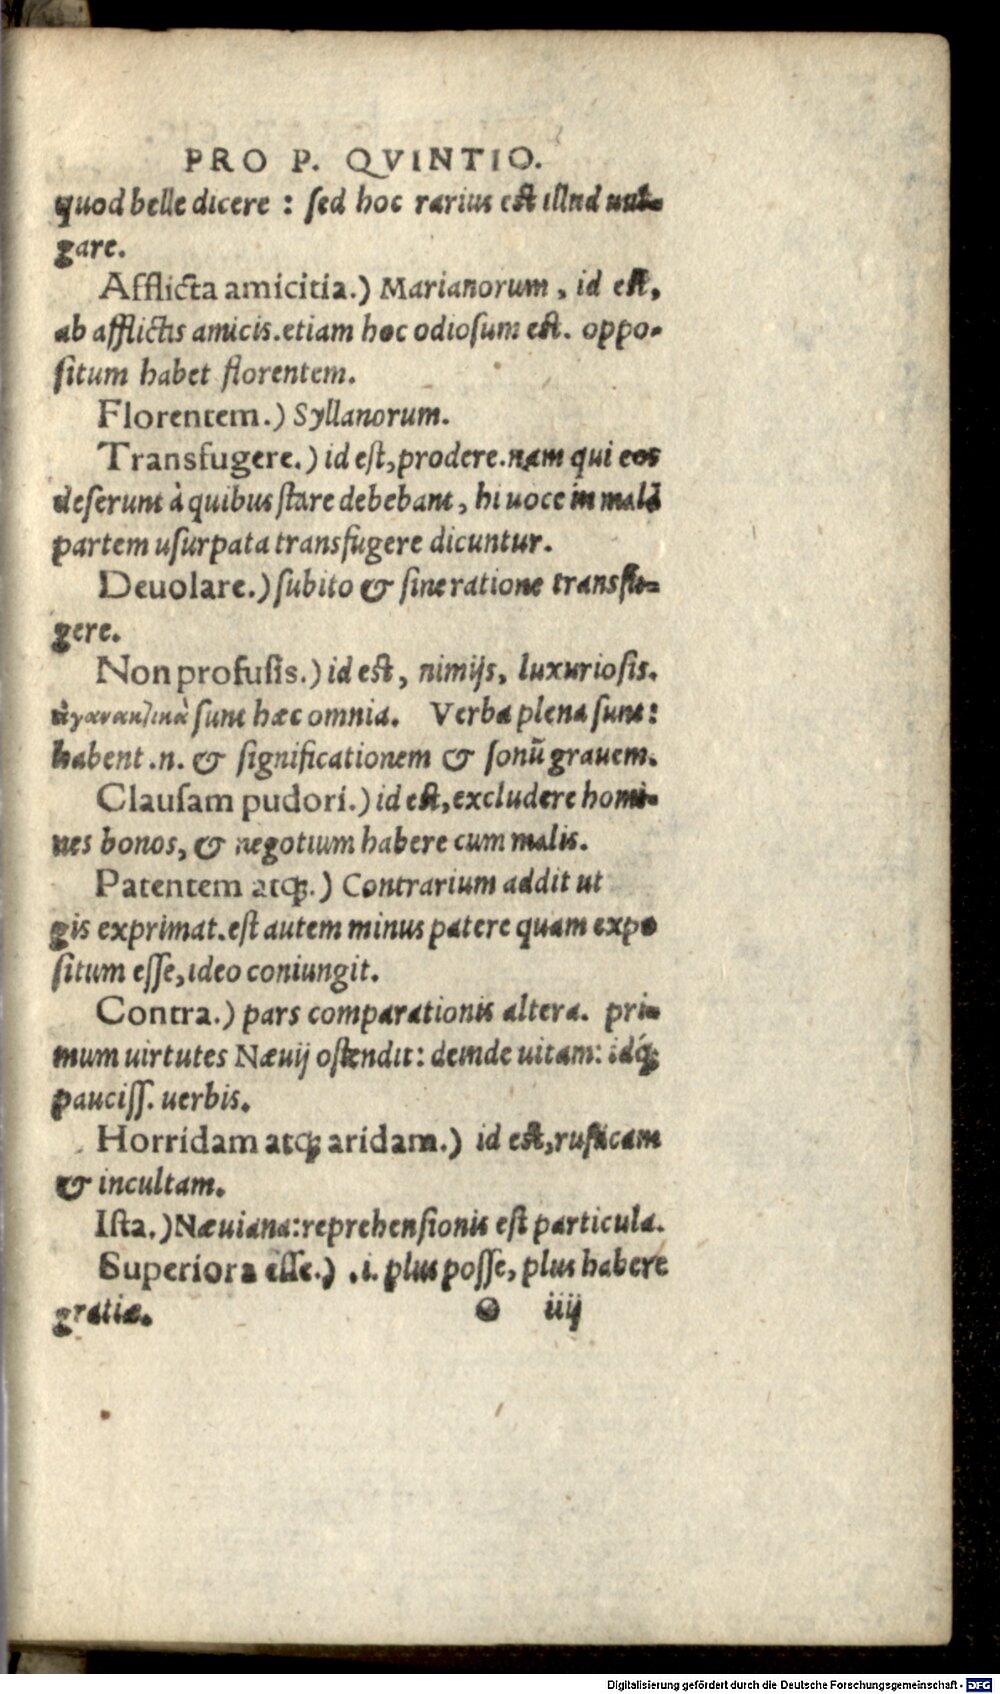 PRO P. QVINTIO.
quod belle dicere : sed hoc rarius est illud uul-
gare.
Afflicta amicitia.) Marianorum, id est,
ab afflictis amicis. etiam hoc odiosum est. oppo-
situm habet florentem.
Florentem.) Syllanorum.
Transfugere.) id est, prodere. nam qui eos
deserunt à quibus stare debebant, hi uoce in malã
partem usurpata transfugere dicuntur.
Deuolare.) subito & sine ratione transfu-
gere.
Non profusis.) id est, nimijs, luxuriosis.
ἀγανακτικὰ sunt hæc omnia. Verba plena sunt:
habent .n. & significationem & sonũ grauem.
Clausam pudori.) id est, excludere homi-
nes bonos, & negotium habere cum malis.
Patentem atq;.) Contrarium addit ut
gis exprimat. est autem minus patere quam expo
situm esse, ideo coniungit.
Contra.) pars comparationis altera. pri-
mum uirtutes Næuij ostendit: deinde uitam: idq́;
pauciss. uerbis.
Horridam atq; aridam.) id est, rusticam
& incultam.
Ista.) Næuiana: reprehensionis est particula.
Superiora esse.) .i. plus posse, plus habere
gratiæ. iiij
Digitalisierung gefördert durch die Deutsche Forschungsgemeinschaft - DFG